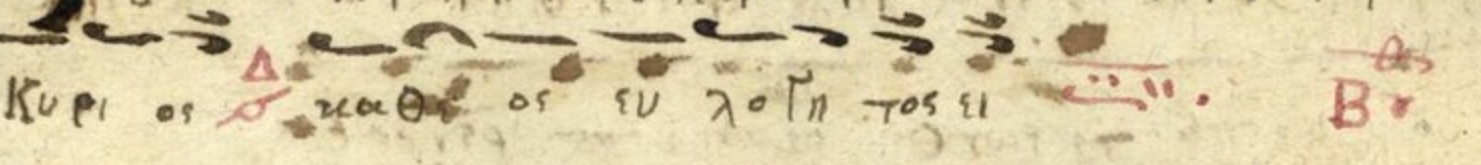 Κυρι ος Δ και Θε ος ευ λο γη τος ει Β